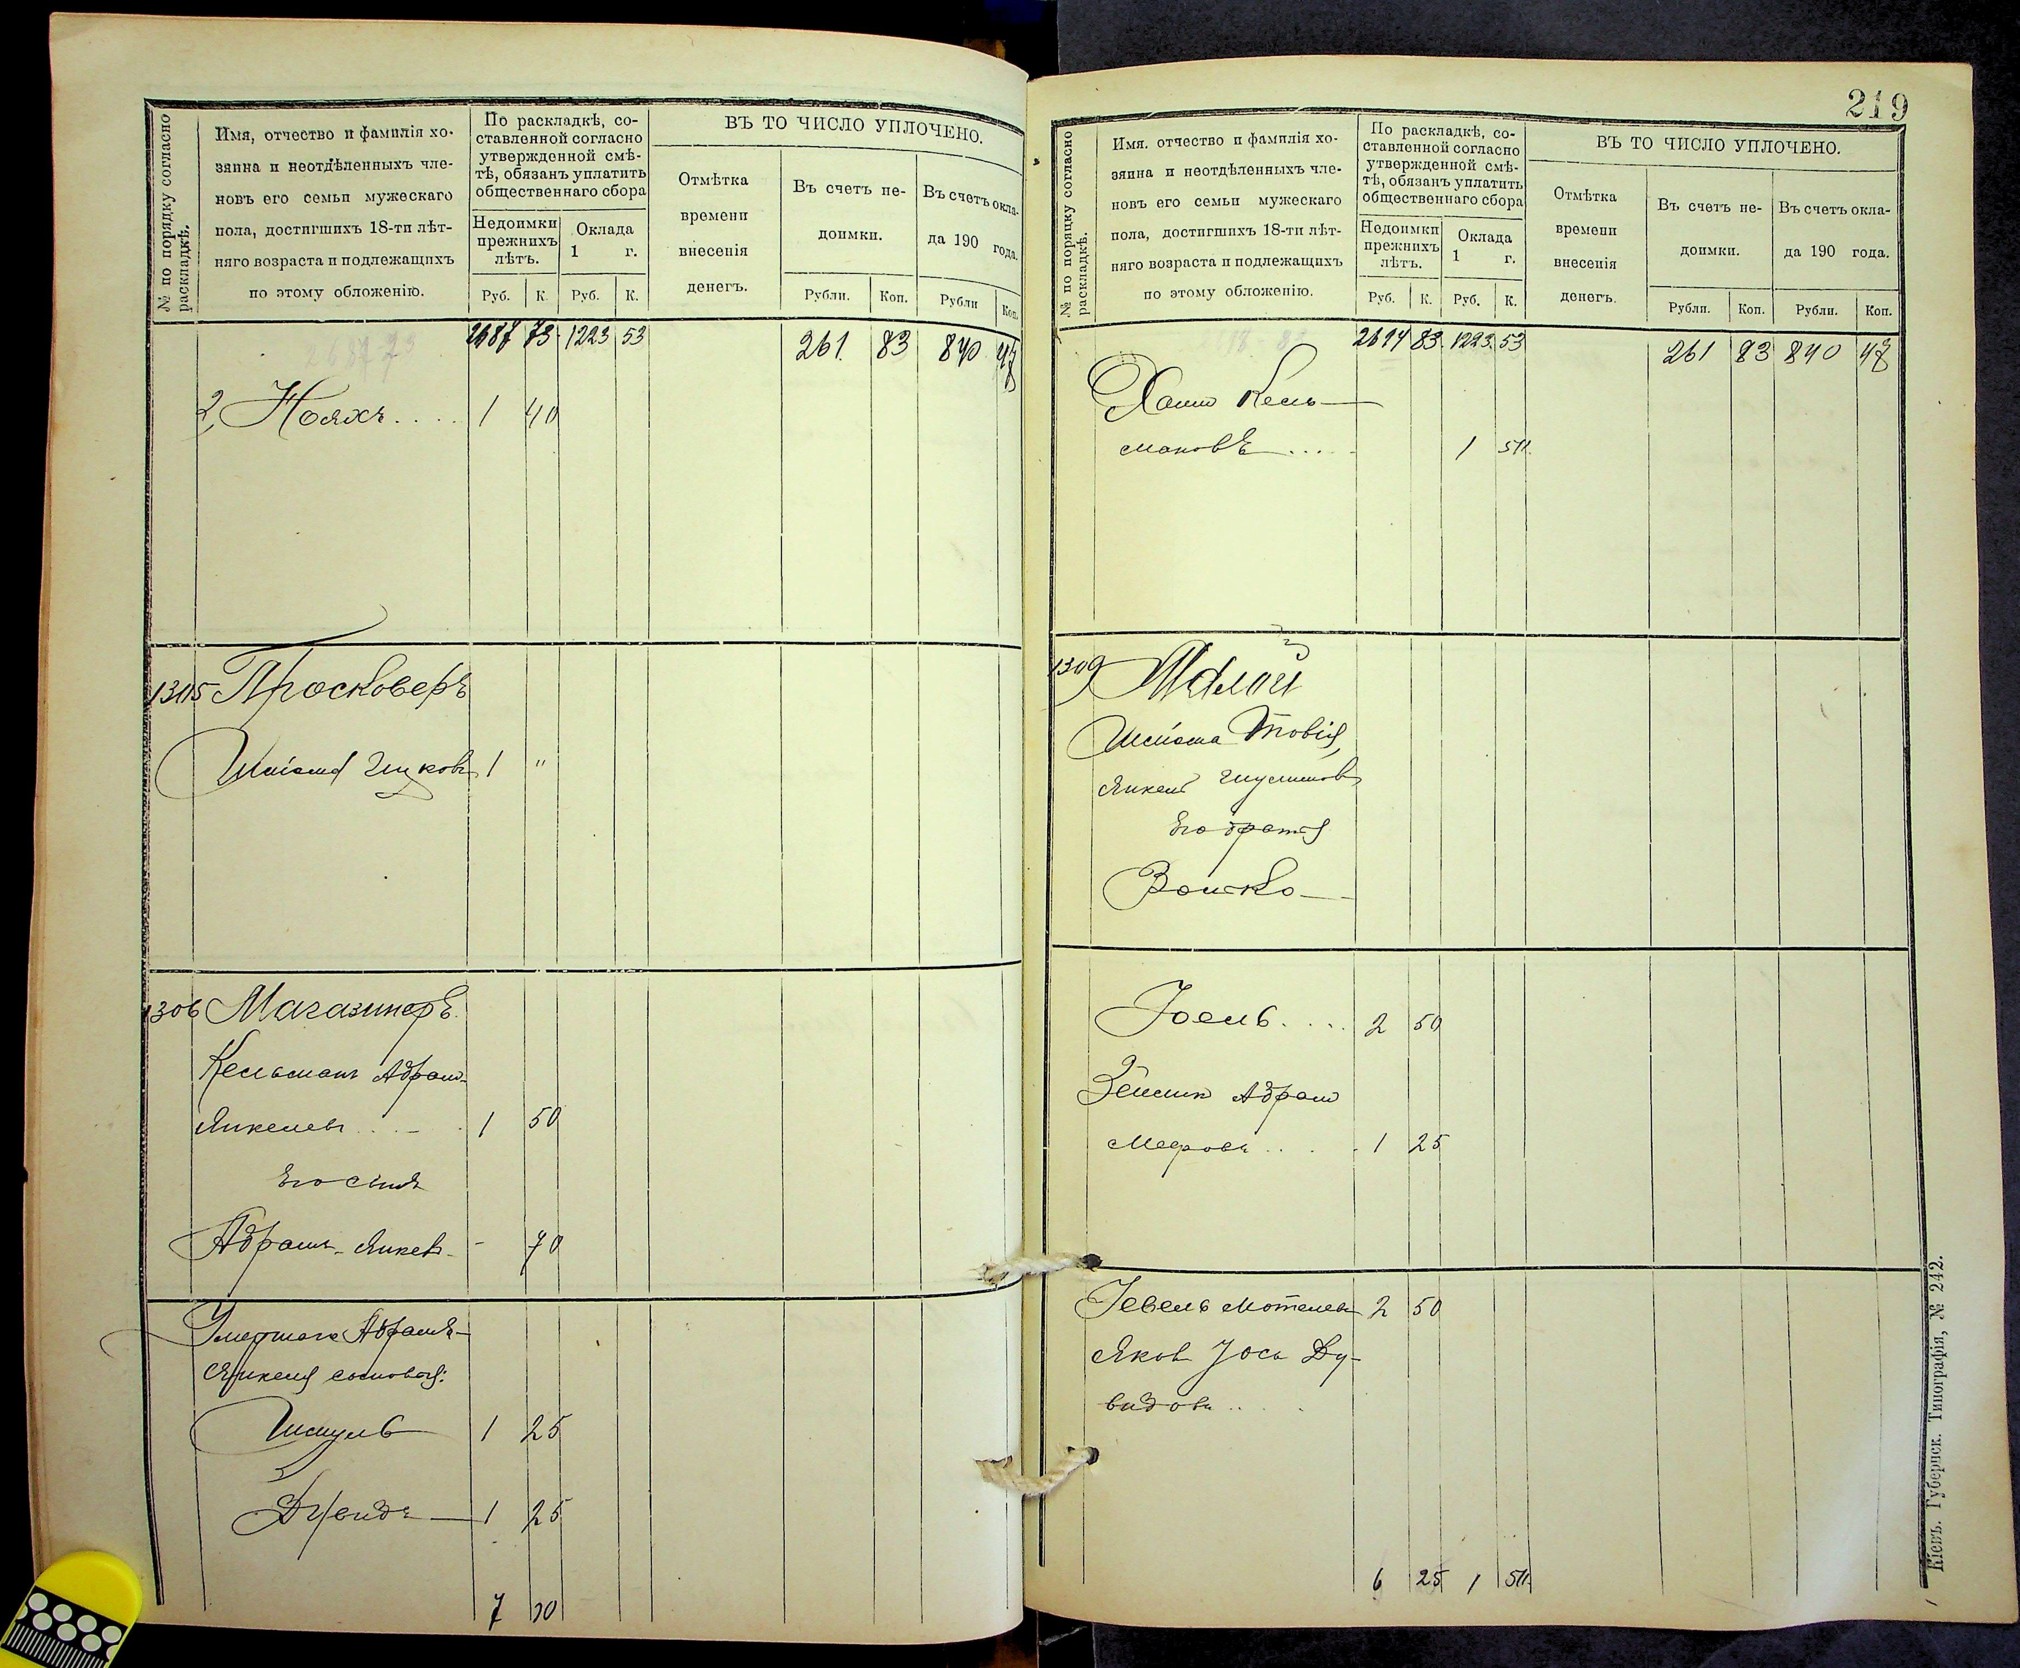 № по порядку согласно раскладкѣ.
Имя, отчество и фамилія хо-
зяина и неотдѣленныхъ чле-
новъ его семьи мужескаго
пола, достигшихъ 18-ти лѣт-
няго возраста и подлежащихъ
по этому обложенію.
По раскладкѣ, со-
ставленной согласно
утвержденной смѣ-
тѣ, обязанъ уплатить
общественнаго сбора
Недоимки
прежнихъ
лѣтъ.
Оклада
1 г.
Руб. К. Руб. К.
ВЪ ТО ЧИСЛО УПЛОЧЕНО.
Отмѣтка
времени
внесенія
денегъ.
Въ счетъ не-
доимки.
Рубли. Коп.
Въ счетъ окла-
да 190 года.
Рубли Коп.
2687 73 1223 53 261 83 840 47
2, Нояхъ.... 1 40
1305 Просковеръ
1 "
1306 Магазинеръ
Кельманъ Абрам-
Янкелевъ 1 50
Его сынъ
Абрамъ-Янкель - 70
Умершаго Абрама-
Янкеля сыновья:
Шмуль 1 25
1 25
7 10
219
№ по порядку согласно раскладкѣ.
Имя, отчество и фамилія хо-
зяина и неотдѣленныхъ чле-
новъ его семьи мужескаго
пола, достигшихъ 18-ти лѣт-
няго возраста и подлежащихъ
по этому обложенію.
По раскладкѣ, со-
ставленной согласно
утвержденной смѣ-
тѣ, обязанъ уплатить
общественнаго сбора
Недоимки
прежнихъ
лѣтъ.
Оклада
1 г.
Руб. К. Руб. К.
ВЪ ТО ЧИСЛО УПЛОЧЕНО.
Отмѣтка
времени
внесенія
денегъ.
Въ счетъ не-
доимки.
Рубли. Коп.
Въ счетъ окла-
да 190 года.
Рубли. Коп.
2694 83 1223 53 261 83 840 47
Хаимъ Кель-
мановъ.... 1 50
1309 Малой
Его братья
Іоель.... 2 50
Абрам
Мееровъ... 1 25
Мотелевъ 2 50
Яковъ Іось Ду-
видовъ...
6 25 1 50
Кіевъ. Губернск. Типографія, № 242.